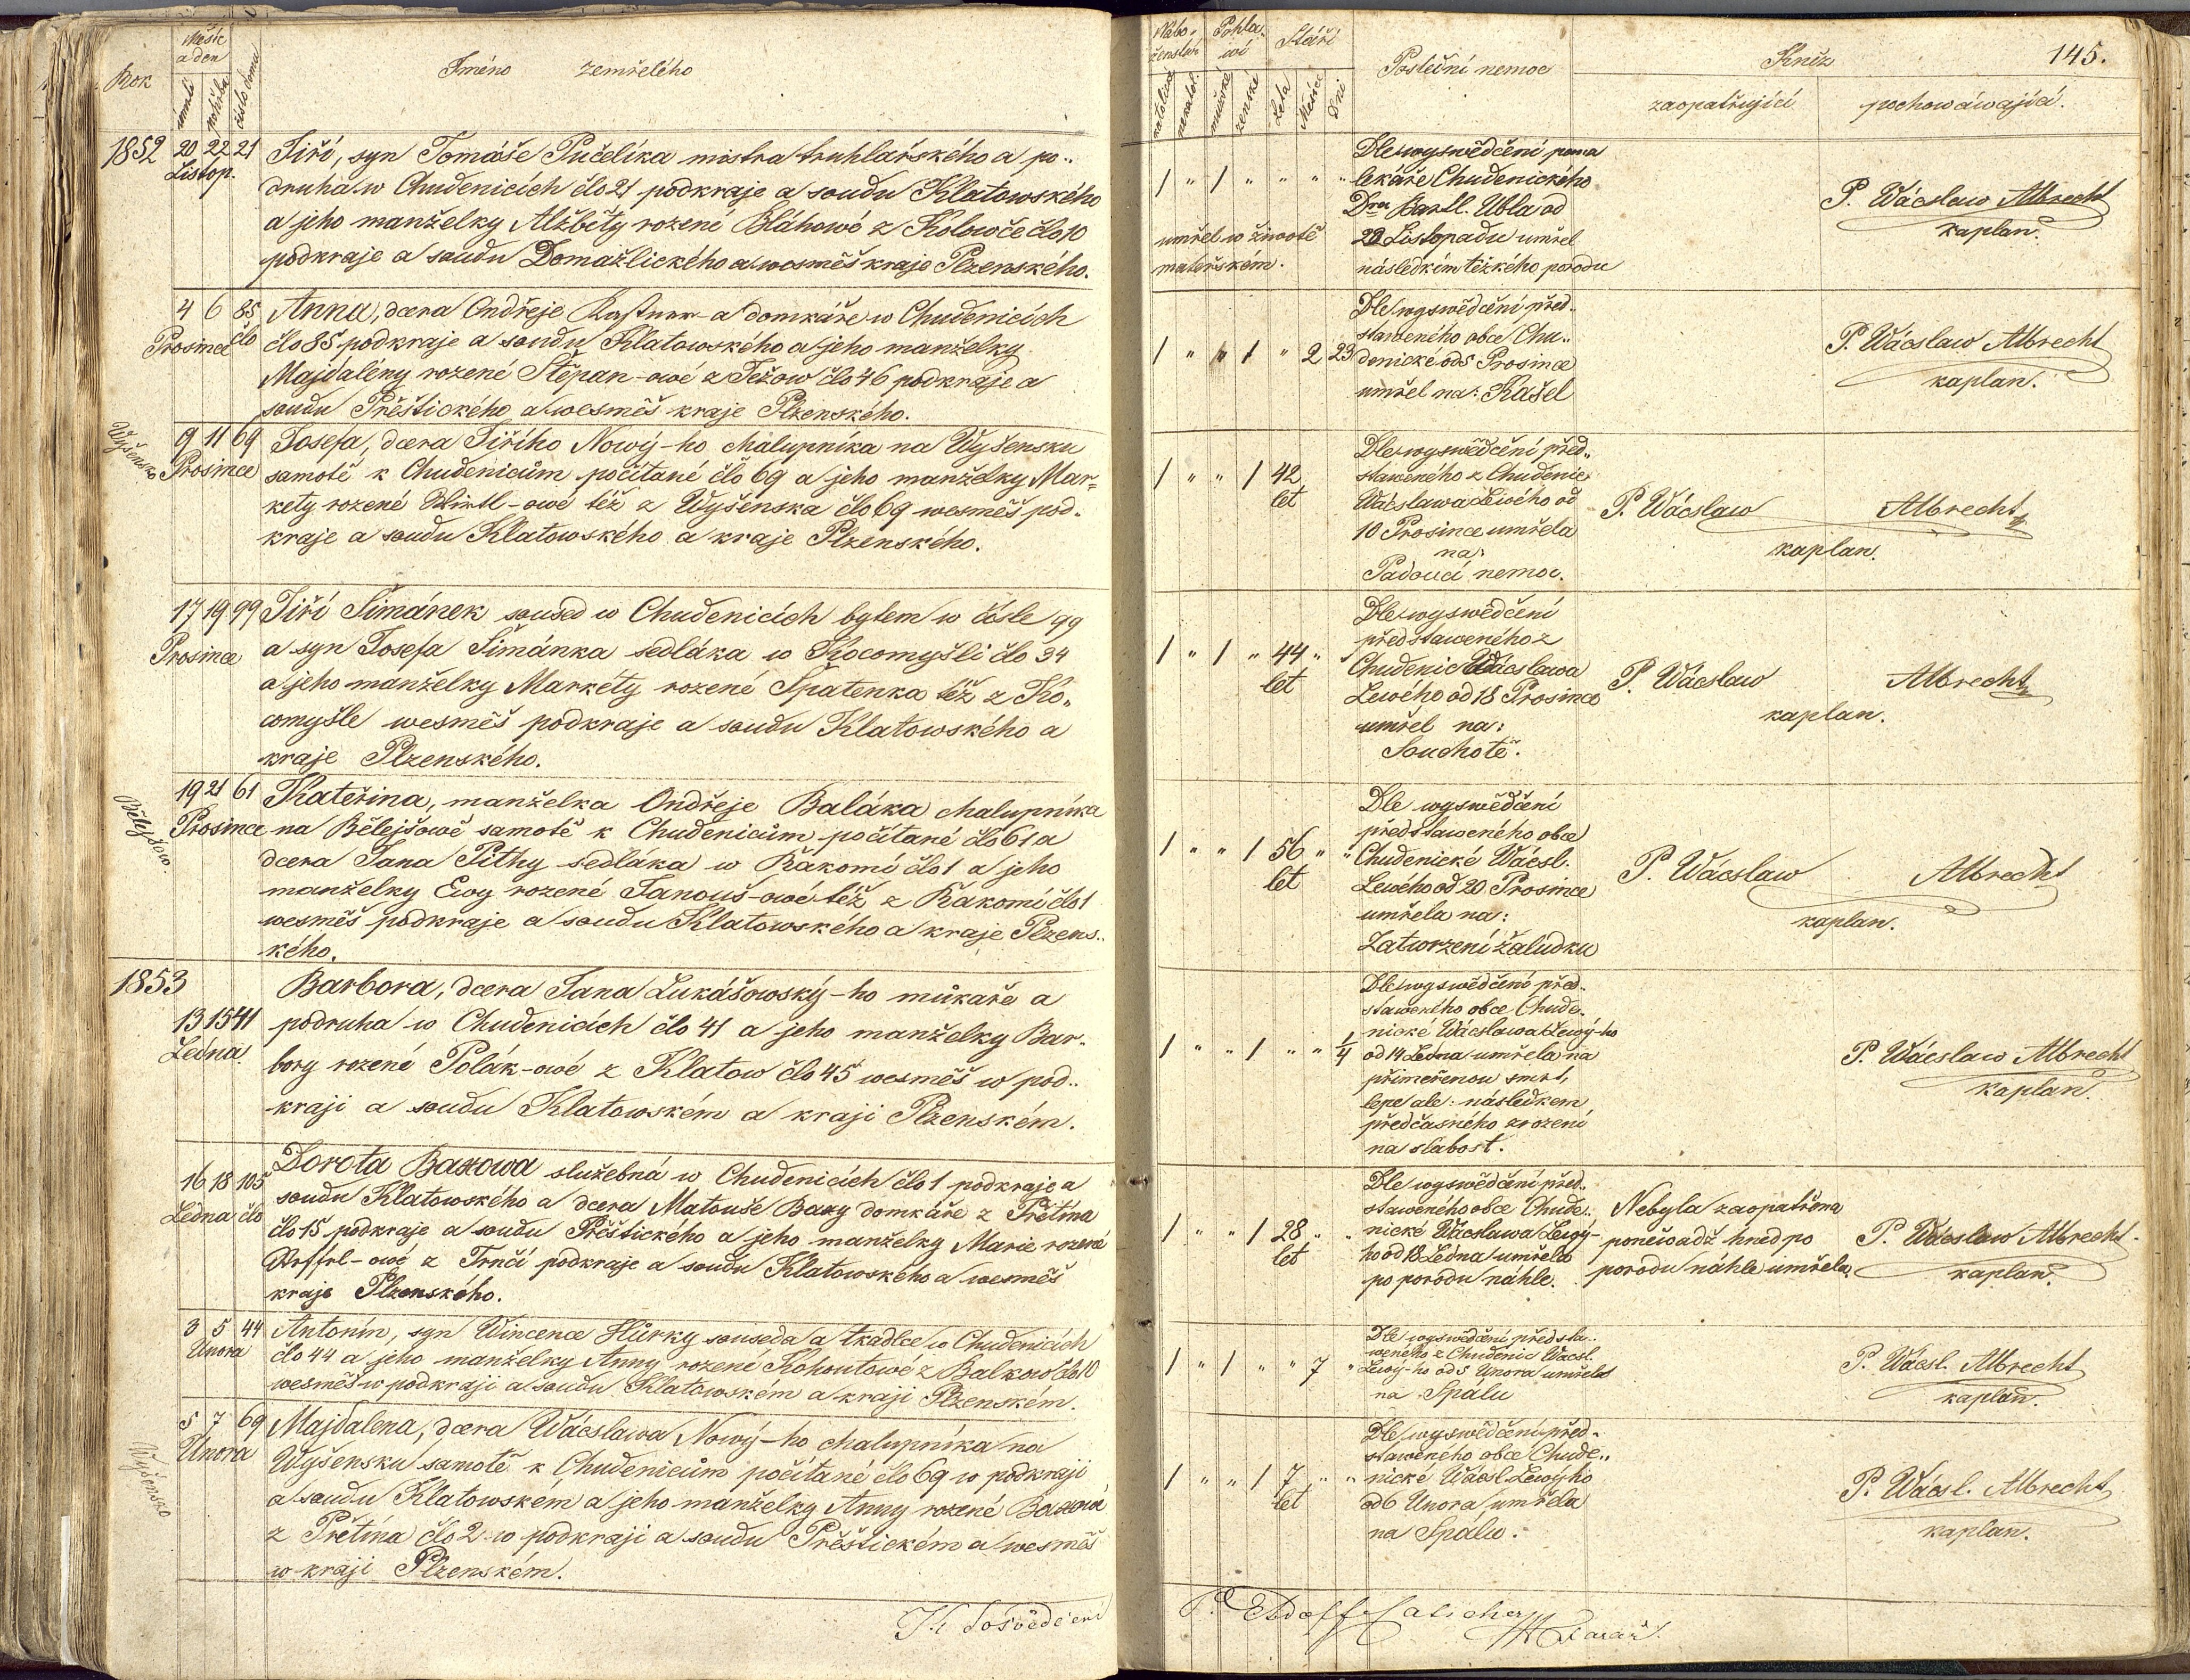 Rok
Měsíc
a den
umřel
pohřbu
číslo domu
Jméno zemřelého
1852
20 22 21
Listop.
Jiří, syn Tomáše Pučelíka mistra truhlářského a po„
druha w Chudenicích člo 21 podkraje a soudu Klatowského
a jeho manželky Alžběty rozené Bláhowé z Kolowče člo 10
podkraje a soudu Domažlického a wesměs kraje Plzenského.
4 6 85
Prosince člo
Anna, dcera Ondřeje Kastner-a domkáře w Chudenicích
člo 85 podkraje a soudu Klatowského a jeho manželky
Majdalény rozené Štěpan-owé z Ježow člo 46 podkraje a
soudu Přěštického a wesměs kraje Plzenského.
Wyšensko
9 11 69
Prosince
Josefa, dcera Jiřího Nowý-ho chalupníka na Wyšensku
samotě k Chudenicům počítané člo 69 a jeho manželky Mar=
kety rozené -owé též z Wyšenska člo 69 wesměs pod„
kraje a soudu Klatowského a kraje Plzenského.
17 19 99
Prosince
Jiří Šimánek soused w Chudenicích bytem w čísle 99
a syn Josefa Šimánka sedláka w Kocomyšli člo 34
a jeho manželky Markéty rozené Špatenka též z Ko„
comyšle wesměs podkraje a soudu Klatowského a
kraje Plzenského.
Bělejšow.
19 21 61
Prosince
Kateřina, manželka Ondřeje Baláka chalupníka
na Bělejšowě samotě k Chudenicům počítané člo 61 a
dcera Jana Pithy sedláka w Řakomi člo 1 a jeho
manželky Ewy rozené Janouš-owé též z Řakomi člo 1
wesměs podkraje a soudu Klatowského a kraje Plzens„
kého.
1853
13 15 41
Ledna.
Barbora, dcera Jana Lukášowský-ho můkaře a
podruha w Chudenicích člo 41 a jeho manželky Bar„
bory rozené Polák-owé z Klatow člo 45 wesměs w pod„
kraji a soudu Klatowském a kraji Plzenském.
16 18 105
Ledna člo
Dorota Baxowa služebná w Chudenicích člo 1 podkraje a
soudu Klatowského a dcera Matouše Baxy domkáře z Přetína
člo 15 podkraje a soudu Přěštického a jeho manželky Marie rozené
-owé z Trnčí podkraje a soudu Klatowského a wesměs
kraje Plzenského.
3 5 44
Unora
Antonín, syn Wincence Hůrky souseda a tkadlce w Chudenicích
člo 44 a jeho manželky Anny rozené Kohoutowé z Balkow člo 10
wesměs w podkraji a soudu Klatowském a kraji Plzenském.
Wyšensko
5 7 69
Unora
Majdalena, dcera Wácslawa Nowý-ho chalupníka na
Wyšensku samotě k Chudenicům počítané člo 69 w podkraji
a soudu Klatowském a jeho manželky Anny rozené Baxowá
z Přetína člo 2 w podkraji a soudu Přěštickém a wesměs
w kraji Plzenském.
145.
Nábo„
ženství
katolické
nekatol.
Pohla„
wí
mužské
ženské
Stáří
Leta
Měsíce
Dni
Poslední nemoc
Kněz
zaopatřující
pochowáwající.
1 " 1 " " " "
umřel w životě
mateřském.
Dle wyswědčení pana
lékaře Chudenického
Dra Bartl. Ubla od
20 Listopadu umřel
následkim těžkého porodu
P. Wácslaw Albrecht
kaplan.
1 " " 1 " 2 23
Dle wyswědčení před„
staweného obce Chu„
denické od 5 Prosince
umřel na: Kašel
P. Wácslaw Albrecht
kaplan.
1 " " 1 42
let
Dle wyswědčení před„
staweného z Chudenic
Wácslawa Lewého od
10 Prosince umřela
na:
Padoucí nemoc.
P. Wácslaw Albrecht
kaplan.
1 " 1 " 44 " "
let
Dle wyswědčení
předstaweného z
Chudenic Wácslawa
Lewého od 18 Prosince
umřel na:
Souchotě.
P. Wácslaw Albrecht
kaplan.
1 " " 1 56 " "
let
Dle wyswědčení
předstaweného obce
Chudenické Wácsl.
Lewého od 20 Prosince
umřela na:
Zatwrzení žalúdku
P. Wácslaw Albrecht
kaplan.
1 " " 1 " " 1/4
Dle wyswědčené před„
staweného obce Chude„
nické Wácslawa Lewý-ho
od 14 Ledna umřela na
přiměřenou smrt,
lépe ale: následkem
předčasného zrození
na slabost.
P. Wácslaw Albrecht
kaplan.
1 " " 1 28 " "
let
Dle wyswědčení před„
staweného obce Chude„
nické Wácslawa Lewý-
ho od 18 Ledna umřela
po porodu náhle.
Nebyla zaopatřena
poněwadž hned po
porodu náhle umřela.
P. Wácslaw Albrecht
kaplan.
1 " 1 " " 7 "
Dle wyswědčení předsta„
weného z Chudenic Wácsl.
Lewý-ho od 5 Unora umřel
na Spálu
P. Wácsl. Albrecht
kaplan.
1 " " 1 7 " "
let
Dle wyswědčení před„
staweného obce Chude„
nické Wácsl. Lewýho
od 6 Unora umřela
na Spálu.
P. Wácsl. Albrecht
kaplan.